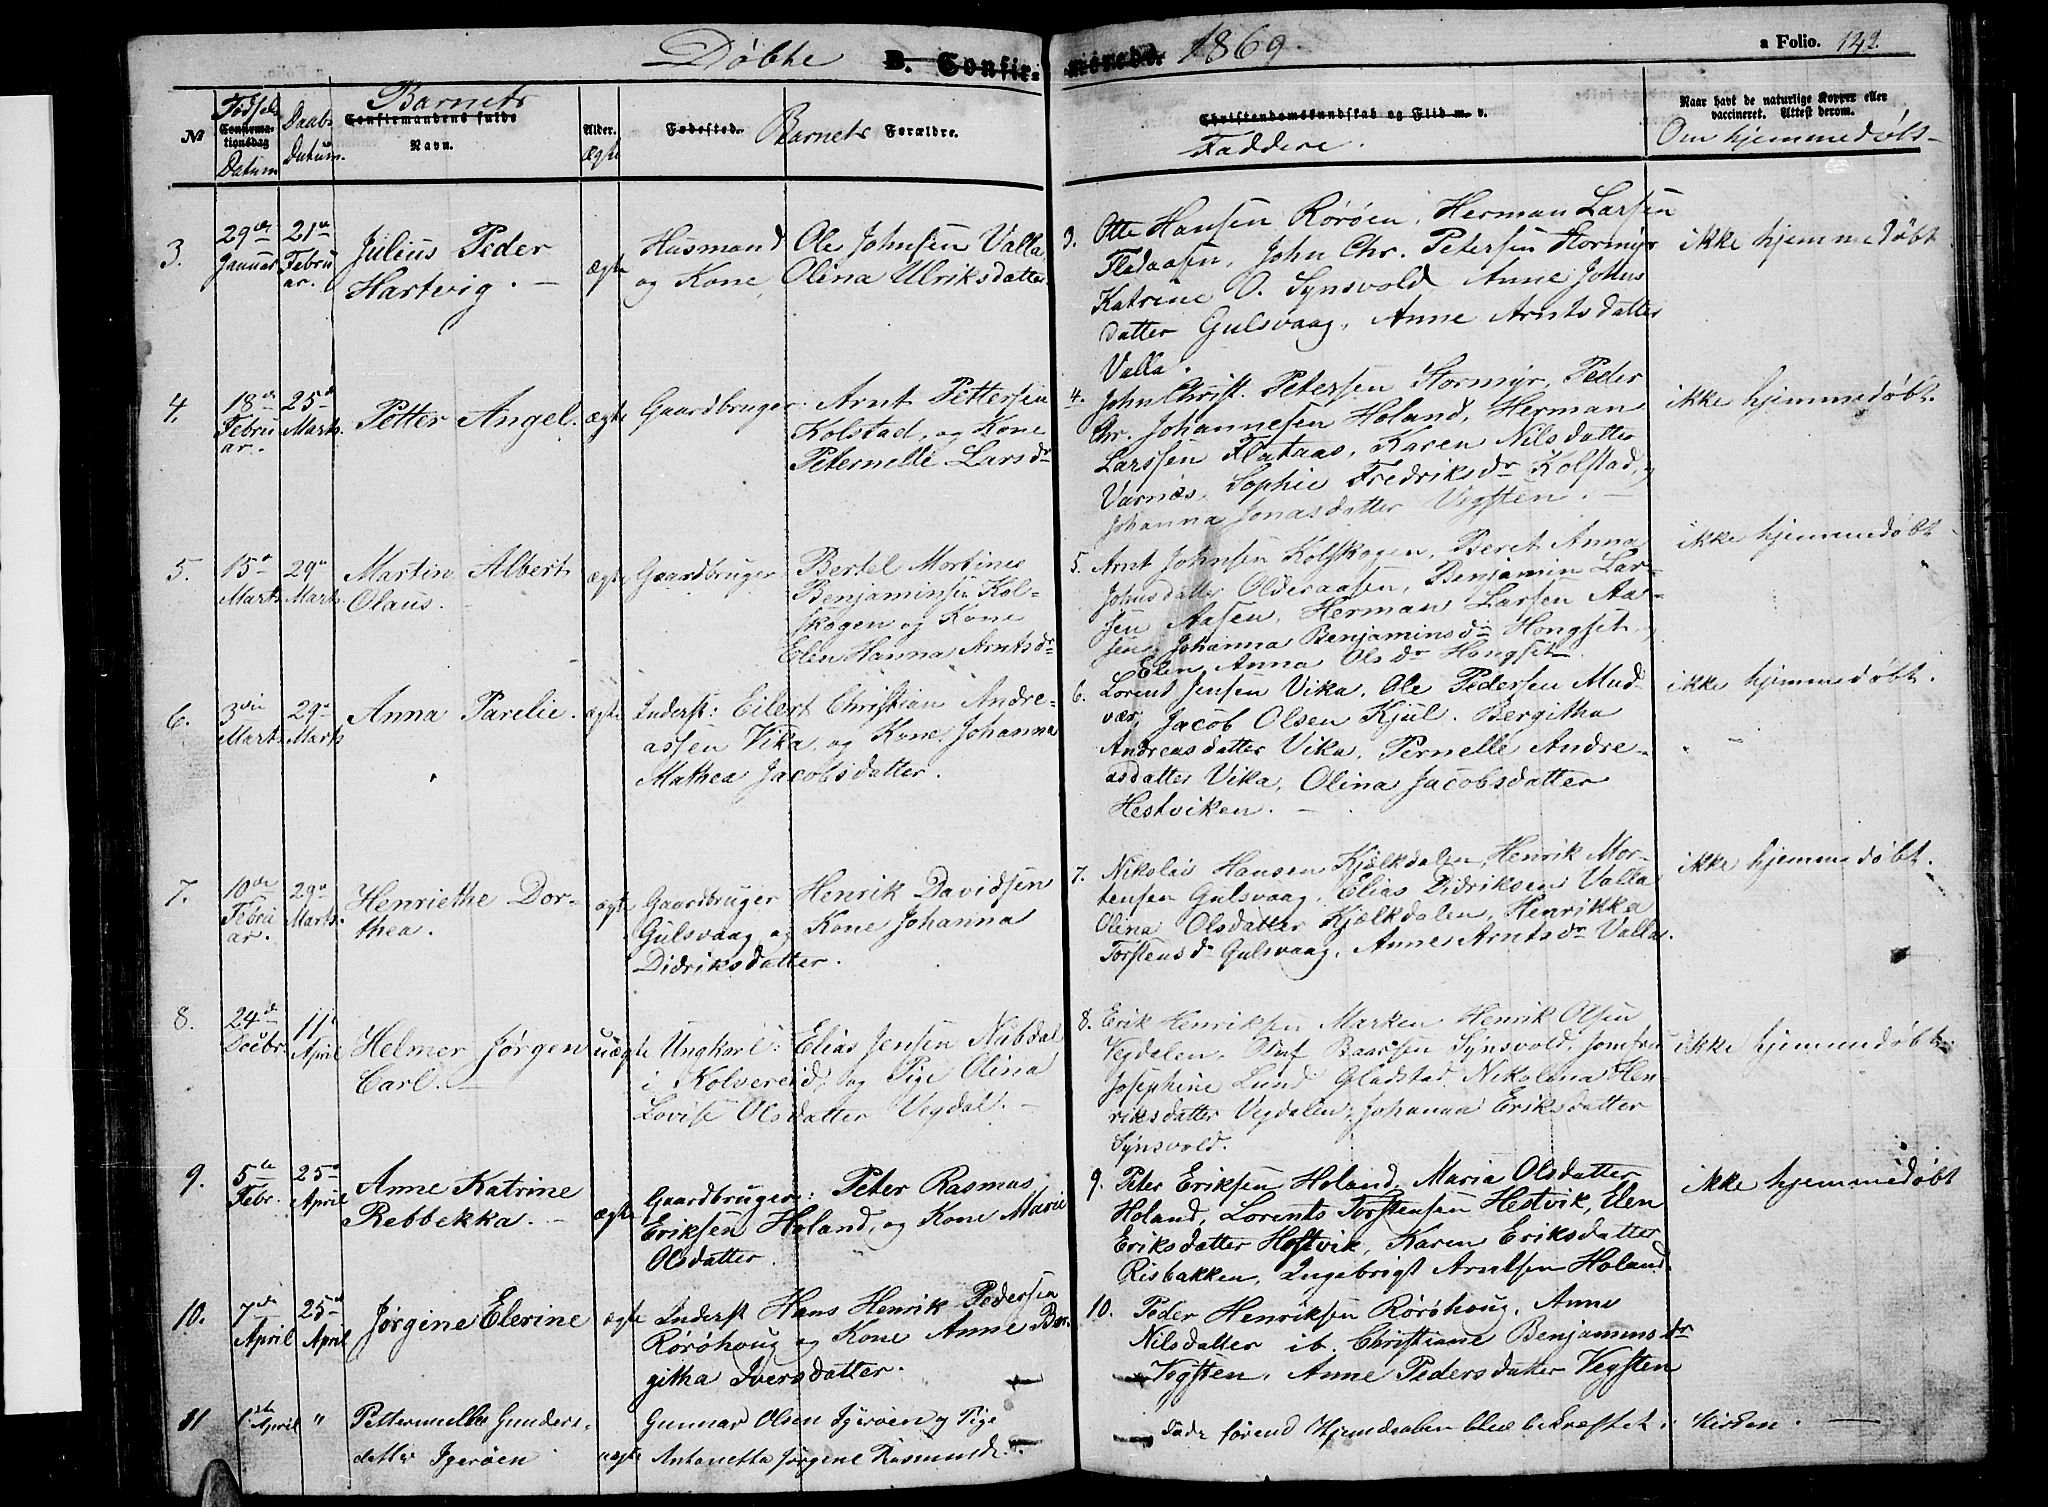 Døbte B. Confir- merede. 1869. a Folio. 142.
Nº Fødsels Confirmationsdag Datum Daabs Datum. Barnets Confirmandens fulde Navn. Alder. ægte Fødested. Barnets Forældre. Christendomskundskab og Flid m. v. Faddere. Naar havt de naturlige Kopper eller vaccineret. Attest derom. Om hjemmedøbt
3.
29de Januar
21de Febru
ar.
Julius Peder
Hartvig. —
ægte
Husmand Ole Johnsen Valla
og Kone, Olina Ulriksdatter.
3. Otte Hansen Rørøen, Herman Larsen
Fladaasen, John Chr. Petersen Stormyr
Katrine O. Synsvold Anne Johns
datter Gulsvaag, Anne Arntsdatter
Valla.
ikke hjemmedøbt
4.
18de
Febru
ar.
25de
Marts.
Petter Angel.
ægte
Gaardbruger: Arnt Pettersen
Kolstad, og Kone
Peternelle Larsdr
4. John Christ. Petersen Stormyr, Peder
Chr. Johannesen Holand, Herman
Larssen Flataas, Karen Nilsdatter
Varnæs, Sophie Fredriksdr Kolstad,
Johanna Jonasdatter Vegsten. —
ikke hjemmedøbt.
5.
15de
Marts
29de
Marts.
Martin Albert
Olaus.
ægte
Gaardbruger Bertel Mortines
Benjaminsen Kol-
skogen og Kone
Elen Hanna Arntsdr
5. Arnt Johnsen Kolskogen, Beret Anna
Johnsdatter Olderaasen, Benjamin Lar-
sen Aasen, Herman Larsen Aa-
sen, Johanna Benjaminsdr Hongset,
Elen Anna Olsdr Hongset.
ikke hjemmedøbt
6.
3die
Marts
29de
Marts
Anna Parelie.
ægte
Inderst: Eilert Christian Andre-
assen Vika, og Kone, Johanna
Mathea Jacobsdatter.
6. Lorents Jensen Vika, Ole Pedersen Mud-
vær, Jacob Olsen Kjul. Bergitha
Andreasdatter Vika, Pernelle Andre-
asdatter Vika, Olina Jacobsdatter
Hestviken. —
ikke hjemmedøbt.
7.
10de
Febru
ar.
29de
Marts.
Henriethe Dor-
thea.
ægte
Gaardbruger Henrik Davidsen
Gulsvaag og Kone Johanna
Didriksdatter.
7. Nikolai Hansen Kjælkdalen, Henrik Mor-
tensen Gulsvaag, Elias Didriksen Valla
Olina Olsdatter Kjælkdalen, Henrikka
Torstensdr Gulsvaag, Anne Arntsdr Valla.
ikke hjemmedøbt.
8.
24de
Decbr.
11te
April
Helmer Jørgen
Carl. —
uægte
Ungkarl: Elias Jensen Nubdal
i Kolvereid, og Pige Olina
Lovise Olsdatter Vegdal. —
8. Erik Henriksen Marken Henrik Olsen
Vegdalen, Oluf Baarsen Synsvold, Jomfru
Josephine Lund Gladstad, Nikolina Hen-
riksdatter Vegdalen, Johanna Eriksdatter
Synsvold.
ikke hjemmedøbt.
9.
5te
Febr.
25de
April
Anne Katrine
Rebbekka. —
ægte
Gaardbruger: Peter Rasmus
Eriksen Holand, og Kone Marie
Olsdatter.
9. Peter Eriksen Holand, Maria Olsdatter
Holand, Lorents Torstensen Hestvik, Elen
Eriksdatter Hestvik, Karen Eriksdatter
Risbakken, Ingebrigt Arntsen Holand.
ikke hjemmedøbt
10.
7de
April
25de
April
Jørgine Elerine
ægte
Inderst Hans Henrik Pedersen
Rørøhoug og Kone Anne Ber-
githa Iversdatter.
10. Peder Henriksen Rørøhoug, Anne
Nilsdatter ib. Christiane Benjaminsdr
Vegsten, Anne Pedersdatter Vegsten
11
1ste April
"
Petternelle Gunders-
datter Igerøen
uægte
Gunnar Olsen Igerøen og Pige
Antonetta Jørgine Rasmusdr.
Døde førend Hjemdaaben blev bekræftet i Kirken. —